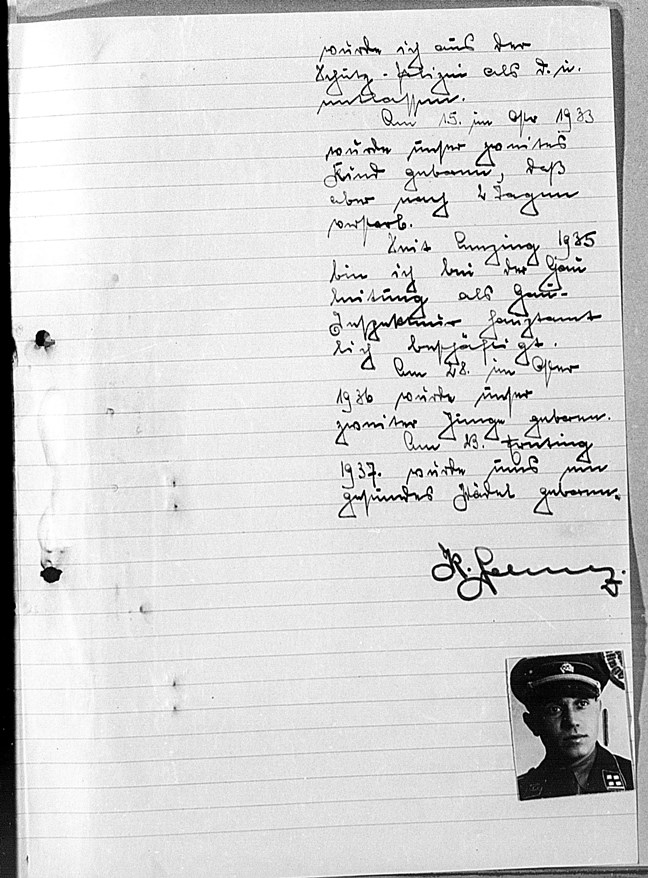 wurde ich aus der
Schutz-Polizei als d. u.
entlassen.
Am 15. im 1933
wurde unser zweites
Kind geboren, daß
aber nach 2 Tagen
verstarb.
Seit Lenzing 1935
bin ich bei der Gau
leitung als Gau-
Inspekteur hauptamt
lich beschäftigt.
Am 28. im
1936 wurde unser
zweiter Junge geboren.
Am 23. Ernting
1937. wurde uns ein
gesundes Mädel geboren.
K.